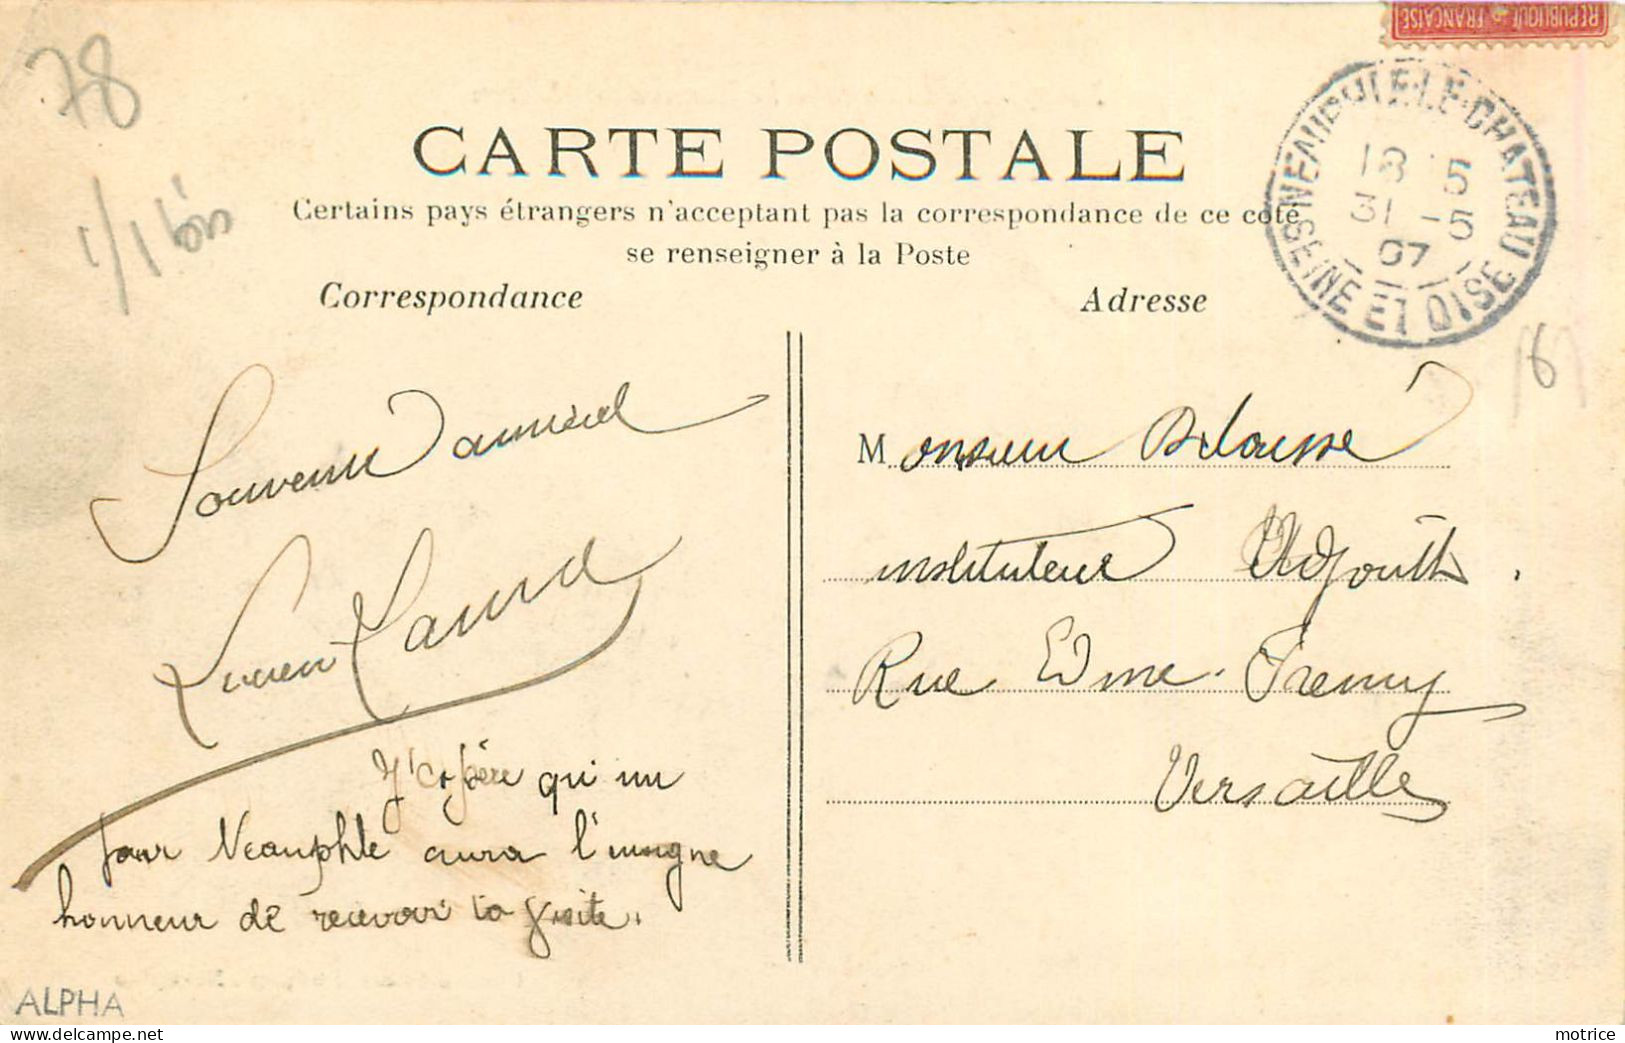 RÉPUBLIQUE FRANÇAISE
78
1/1 bis
CARTE POSTALE
Certains pays étrangers n'acceptant pas la correspondance de ce coté
se renseigner à la Poste
Correspondance
Adresse
NEAUPHLE-LE-CHATEAU
18 5
31 -5
07
SEINE ET OISE
Souvenir d'amical
Lucien
J'espère qui un
jour Neauphle aura l'insigne
honneur de recevoir ta visite.
Monsieur Delousse
instituteur Adjoint
Rue Edme Fremy
Versailles
ALPHA
motrice